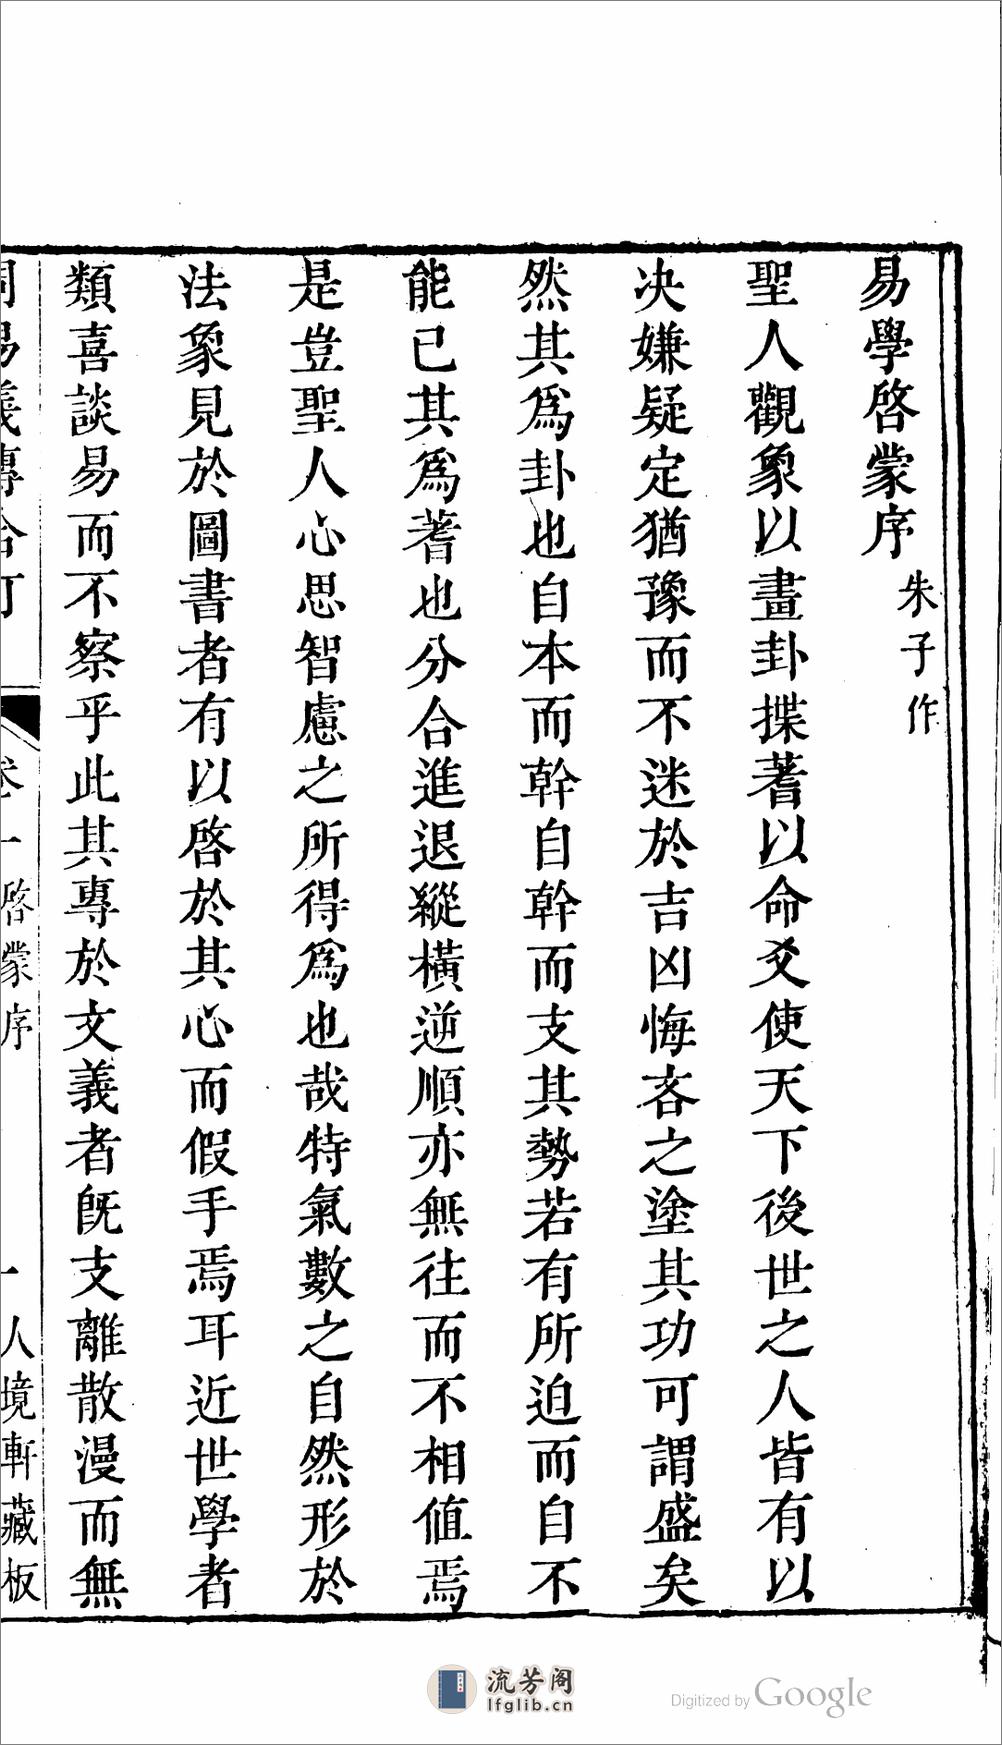 易學啓蒙序 朱子作
聖人觀象以畫卦揲蓍以命爻使天下後世之人皆有以
決嫌疑定猶豫而不迷於吉凶悔吝之塗其功可謂盛矣
然其爲卦也自本而幹自幹而支其勢若有所迫而自不
能已其爲蓍也分合進退縱橫逆順亦無往而不相值焉
是豈聖人心思智慮之所得爲也哉特氣數之自然形於
法象見於圖書者有以啓於其心而假手焉耳近世學者
類喜談易而不察乎此其專於文義者旣支離散漫而無
周易義傳合訂 卷一 啓蒙序 一 人境軒藏板
流芳阁
lfglib.cn
Digitized by Google